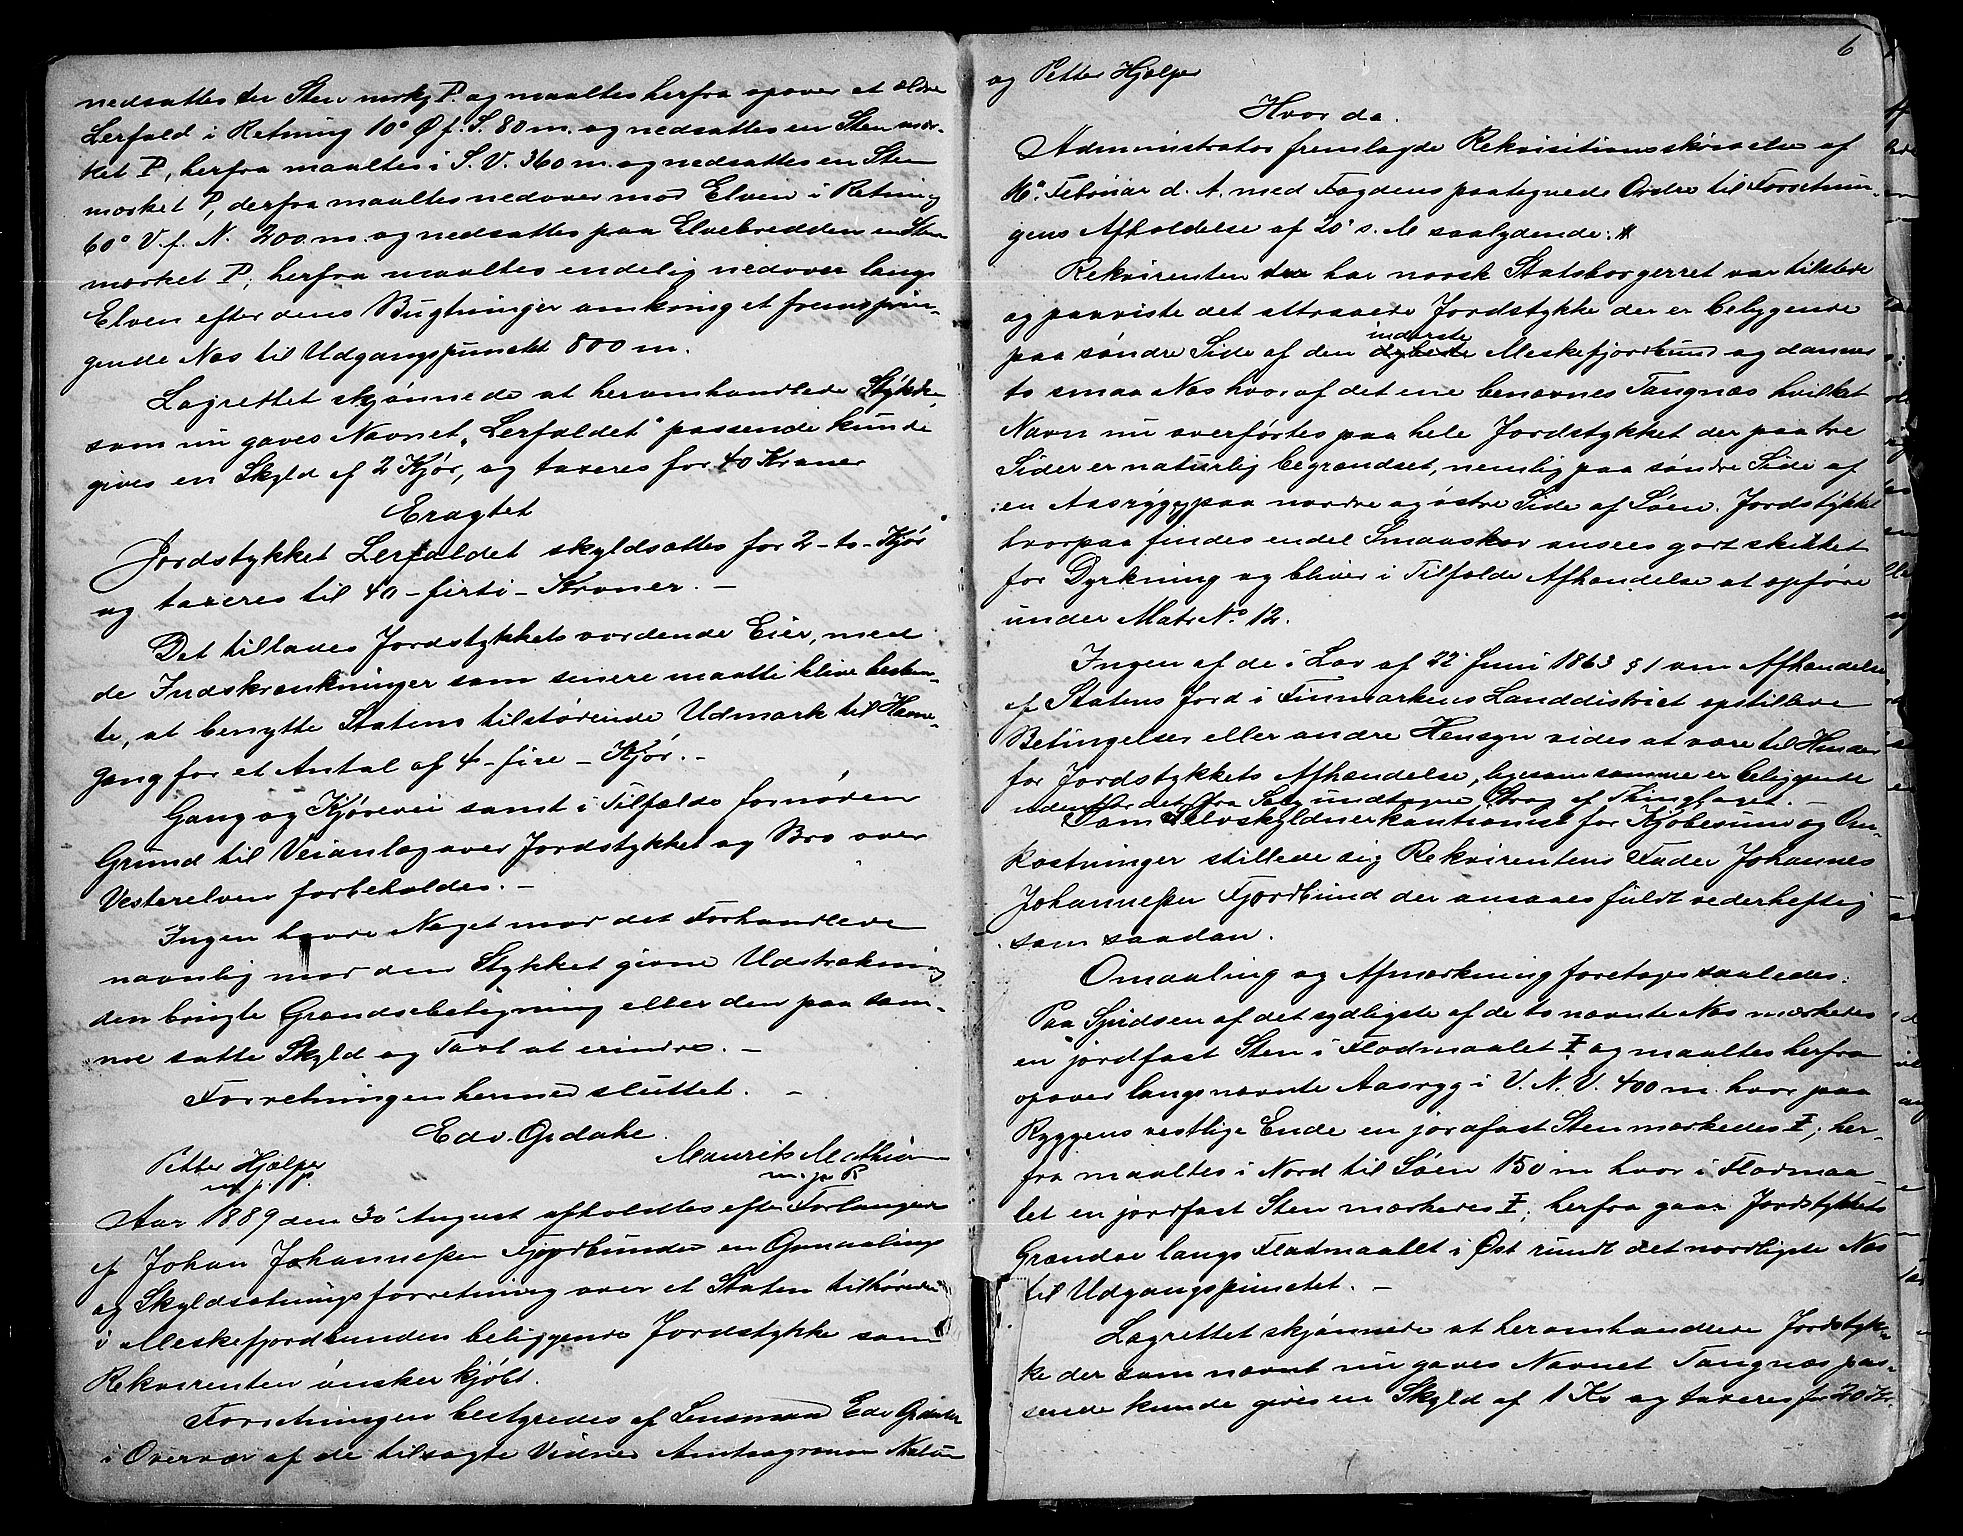 nedsattes en Sten mrkg P. og maaltes herfra opover et ældre
Lerfald i Retning 10° Ø f. S. 80 m. og nedsattes en Sten mær-
ket P, herfra maaltes i S. V. 360 m. og nedsattes en Sten
mærket P, derfra maaltes nedover mod Elven i Retning
60° V. f. N. 200 m. og nedsattes paa Elvebredden en Sten
mærket P, herfra maaltes endelig nedover langs
Elven efter dens Bugtninger omkring et fremsprin-
gende Næs til Udgangspunktet 800 m.
Lagrettet skjønnede at heromhandlede Stykke,
som nu gaves Navnet „Lerfaldet" passende kunde
gives en Skyld af 2 Kjør, og taxeres for 40 Kroner
Eragtet
Jordstykket Lerfaldet skyldsættes for 2 - to - Kjør
og taxeres til 40 - firti - Kroner. -
Det tillades Jordstykkets vordende Eier, med
de Indskrænkninger som senere maatte blive bestem-
te, at benytte Statens tilstødende Udmark til Havne-
gang for et Antal af 4 - fire - Kjør. -
Gang og Kjørevei samt i Tilfælde fornøden
Grund til Veianlæg over Jordstykket og Bro over
Vesterelven forbeholdes. -
Ingen havde Noget mod det Forhandlede
navnlig mod den Stykket givne Udstrækning
den brugte Grændsebetegning eller den paa sam-
me satte Skyld og Taxt at erindre. -
Forretningen hermed sluttet. -
Edv. Opdahl.
Petter Hjælper
m. p. P.
Maurits Mathisen
m. p. P.
Aar 1889 den 30' August afholdtes efter Forlangende
af Johan Johannesen Fjordbunde en Opmaalings
og Skyldsætningsforretning over et Staten tilhørende
i Meskefjordbunden beliggende Jordstykke som
Rekvirenten ønsker kjøbt.
Forretningen bestyredes af Lensmand Edv Opdahl
i Overvær af de tilsagte Vidner Amtsagronom
6
og Petter Hjælper
Hvor da.
Administrator fremlagde Rekvisitionsskrivelse af
16' Februar d. A. med Fogdens paategnede Ordre til Forretnin-
gens Afholdelse af 20' s. M saalydende:
Rekvirenten der har norsk Statsborgerret var tilstede
og paaviste det attraaede Jordstykke der er beliggende
paa søndre Side af den inderste Meskefjordbund og danner
to smaa Næs hvoraf det ene benævnes Tangnæs hvilket
Navn nu overførtes paa hele Jordstykket der paa tre
Sider er naturlig begrændset, nemlig paa søndre Side af
en Aasryg, paa nordre og østre Side af Søen. Jordstykket
hvorpaa findes endel Smaaskov ansees godt skikket
for Dyrkning og bliver i Tilfælde Afhændelse at opføre
under Matr. No. 12.
Ingen af de i Lov af 22' Juni 1863 § 1 om Afhændelse
af Statens Jord i Finmarkens Landdistrict opstillede
Betingelser eller andre Hensyn vides at være til Hinder
for Jordstykkets Afhændelse, ligesom samme er beliggende
udenfor det fra Salg undtagne Strøg af Thinglaget. -
Som Selvskyldnerkautionist for Kjøbesum og Om-
kostninger stillede sig Rekvirentens Fader Johannes
Johannesen Fjordbund der ansaaes fuldt vederheftig
som saadan.
Opmaaling og Afmærkning foretoges saaledes:
Paa Spidsen af det sydligste af de to nævnte Næs mærkedes
en jordfast Sten i Flodmaalet X og maaltes herfra
opover langs nævnte Aasryg i V. N. V. 400 m. hvor paa
Ryggens vestlige Ende en jordfast Sten mærkedes X, her-
fra maaltes i Nord til Søen 150 m hvor i Flodmaa-
let en jordfast Sten mærkedes X, herfra gaar Jordstykkets
Grændse langs Flodmaalet i Øst rundt det nordligste Næs
til Udgangspunctet. -
Lagrettet skjønnede at heromhandlede Jordstyk-
ke der som nævnt nu gaves Navnet Tangnæs pas-
sende kunde gives en Skyld af 1 Ko og taxeres for 20 Kr.